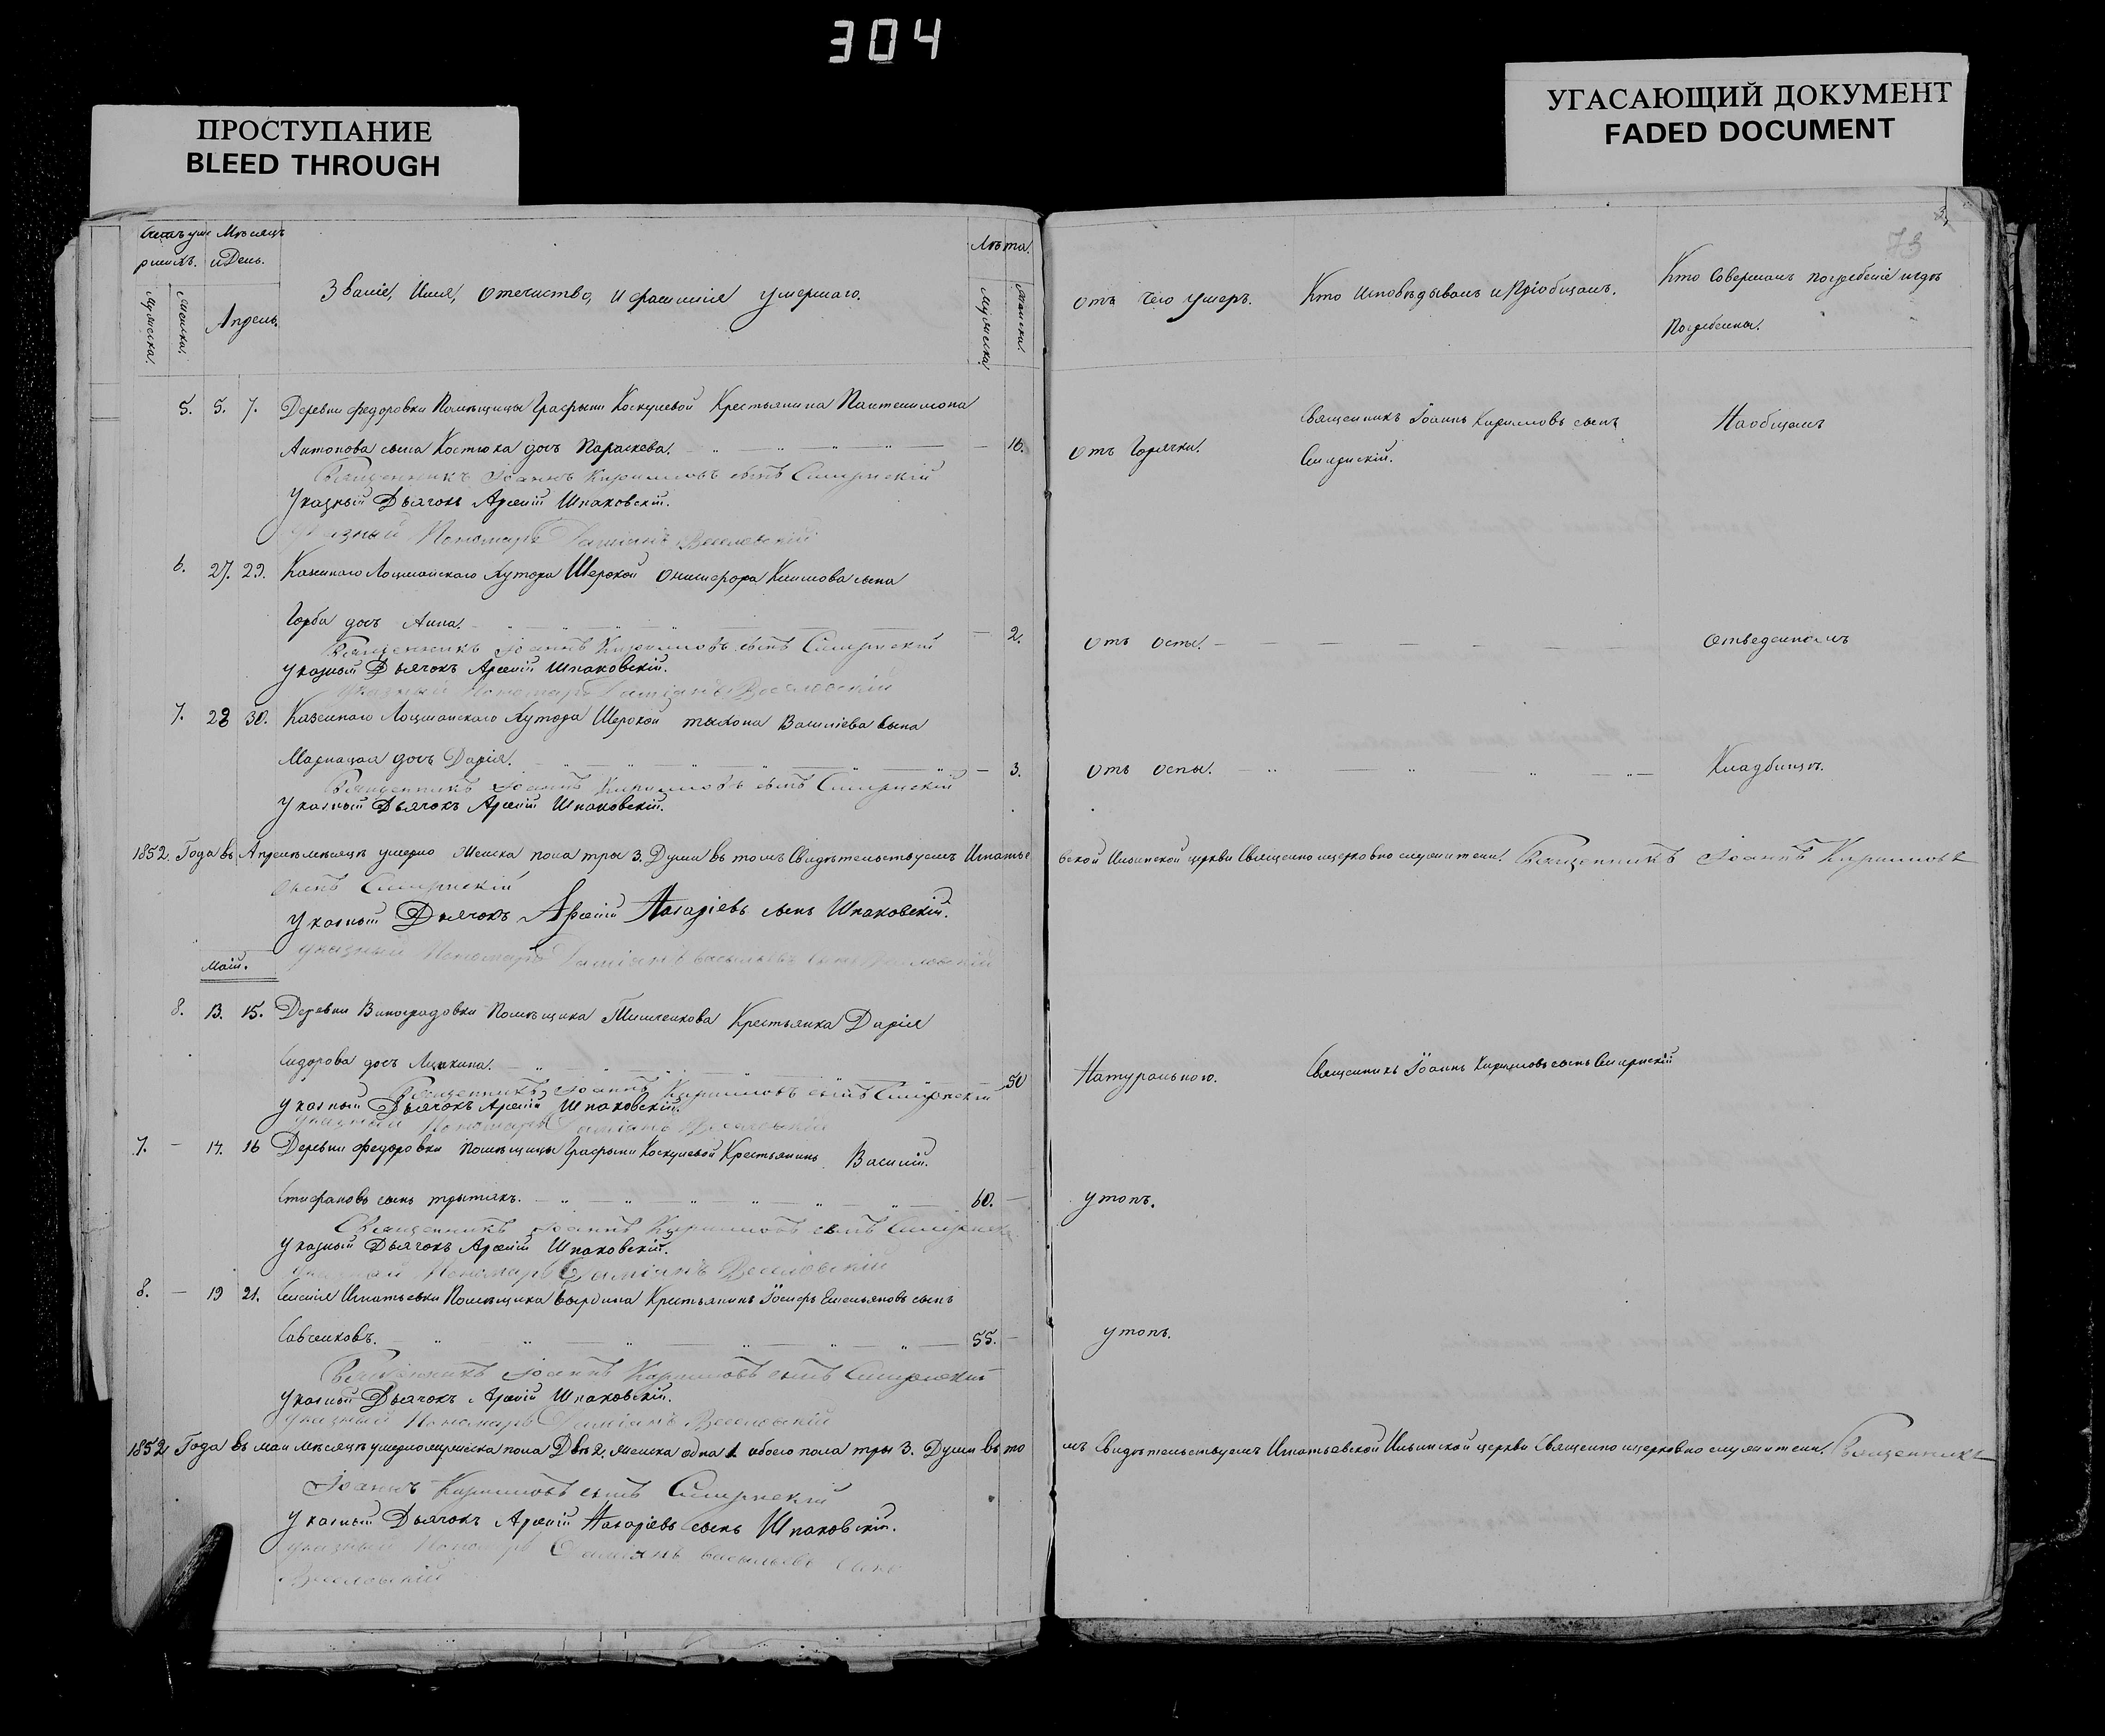 304
ПРОСТУПАНИЕ
BLEED THROUGH
УГАСАЮЩИЙ ДОКУМЕНТ
FADED DOCUMENT
73
Мѣсяцъ
и День.
Лѣта.
Мужеска.
Женска.
Апрель.
Званіе, Имя, Отечиство, и фамилія умершаго.
Мужеска.
Женска.
отъ чего умеръ.
Кто Исповѣдывалъ и Пріобщалъ.
Кто Совершалъ погребеніе и гдѣ
Погребены.
5. 5. 7. Деревни Федоровки Помѣщицы Графыни Крестьянина Пантелимона
Антонова сына Костюка дочь Параскева. 16.
отъ Горячки.
Священникъ Іоаннъ Кирилловъ сынъ
На общемъ
Священникъ Іоаннъ Кирилловъ сынъ
Указный Дьячокъ Арсеній Шпаковскій.
Указный Пономарь Даміанъ Веселовскій
6. 27. 29. Казеннаго Лоцманскаго Хутора Широкой Онисифора Климова сына
Горба дочь Анна. 2.
отъ оспы.
Отведенномъ
Священникъ Іоаннъ Кирилловъ сынъ
Указный Дьячокъ Арсеній Шпаковскій.
Указный Пономарь Даміанъ Веселовскій
7. 28 30. Казеннаго Лоцманскаго Хутора Широкой Тыхона Василіева сына
дочь Дарія. 3.
отъ оспы.
Кладбищѣ.
Священникъ Іоаннъ Кирилловъ сынъ
Указный Дьячокъ Арсеній Шпаковскій.
1852. Года въ Апрелѣ мѣсяцѣ умерло Женска пола тры 3. Души въ томъ Свидѣтельствуемъ Игнатье
вской Ильинской церкви Священно ицерковно служители. Священникъ Іоаннъ Кирилловъ
сынъ
Указный Дьячокъ Арсеній Назаріевъ сынъ Шпаковскій.
Указный Пономарь Даміанъ Васильевъ сынъ Веселовскій
Маій.
8. 13. 15. Деревни Виноградовки Помѣщика Крестьянка Дарія
Сидорова дочь 50
Натурального.
Священникъ Іоаннъ Кирилловъ сынъ
Священникъ Іоаннъ Кирилловъ сынъ
Указный Дьячокъ Арсеній Шпаковскій.
Указный Пономарь Даміанъ Веселовскій
7. — 14. 16 Деревни Федоровки Помѣщицы Графыни Крестьянинъ Василій.
Стифановъ сынъ Трытякъ. 60.
утопъ.
Священникъ Іоаннъ Кирилловъ сынъ
Указный Дьячокъ Арсеній Шпаковскій.
Указный Пономарь Даміанъ Веселовскій
8. — 19 21. Селенія Игнатьевки Помѣщика Крестьянинъ Емельяновъ сынъ
Савченковъ. 55.
утопъ.
Священникъ Іоаннъ Кирилловъ сынъ
Указный Дьячокъ Арсеній Шпаковскій.
Указный Пономарь Даміанъ Веселовскій
1852 Года въ маи мѣсяцѣ умерло мужеска пола Двѣ 2. женска одна 1. обоего пола тры 3. Души въ то
мъ Свидѣтельствуемъ Игнатьевской Ильинской церкви Священно ицерковно служители. Священникъ
Іоаннъ Кирилловъ сынъ
Указный Дьячокъ Арсеній Назаріевъ сынъ Шпаковскій.
Указный Пономарь Даміанъ Васильевъ сынъ
Веселовскій